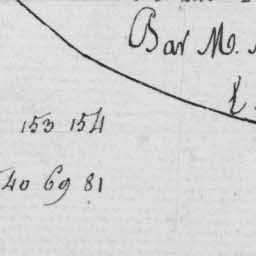 Bar M.
153 154
40 69 81